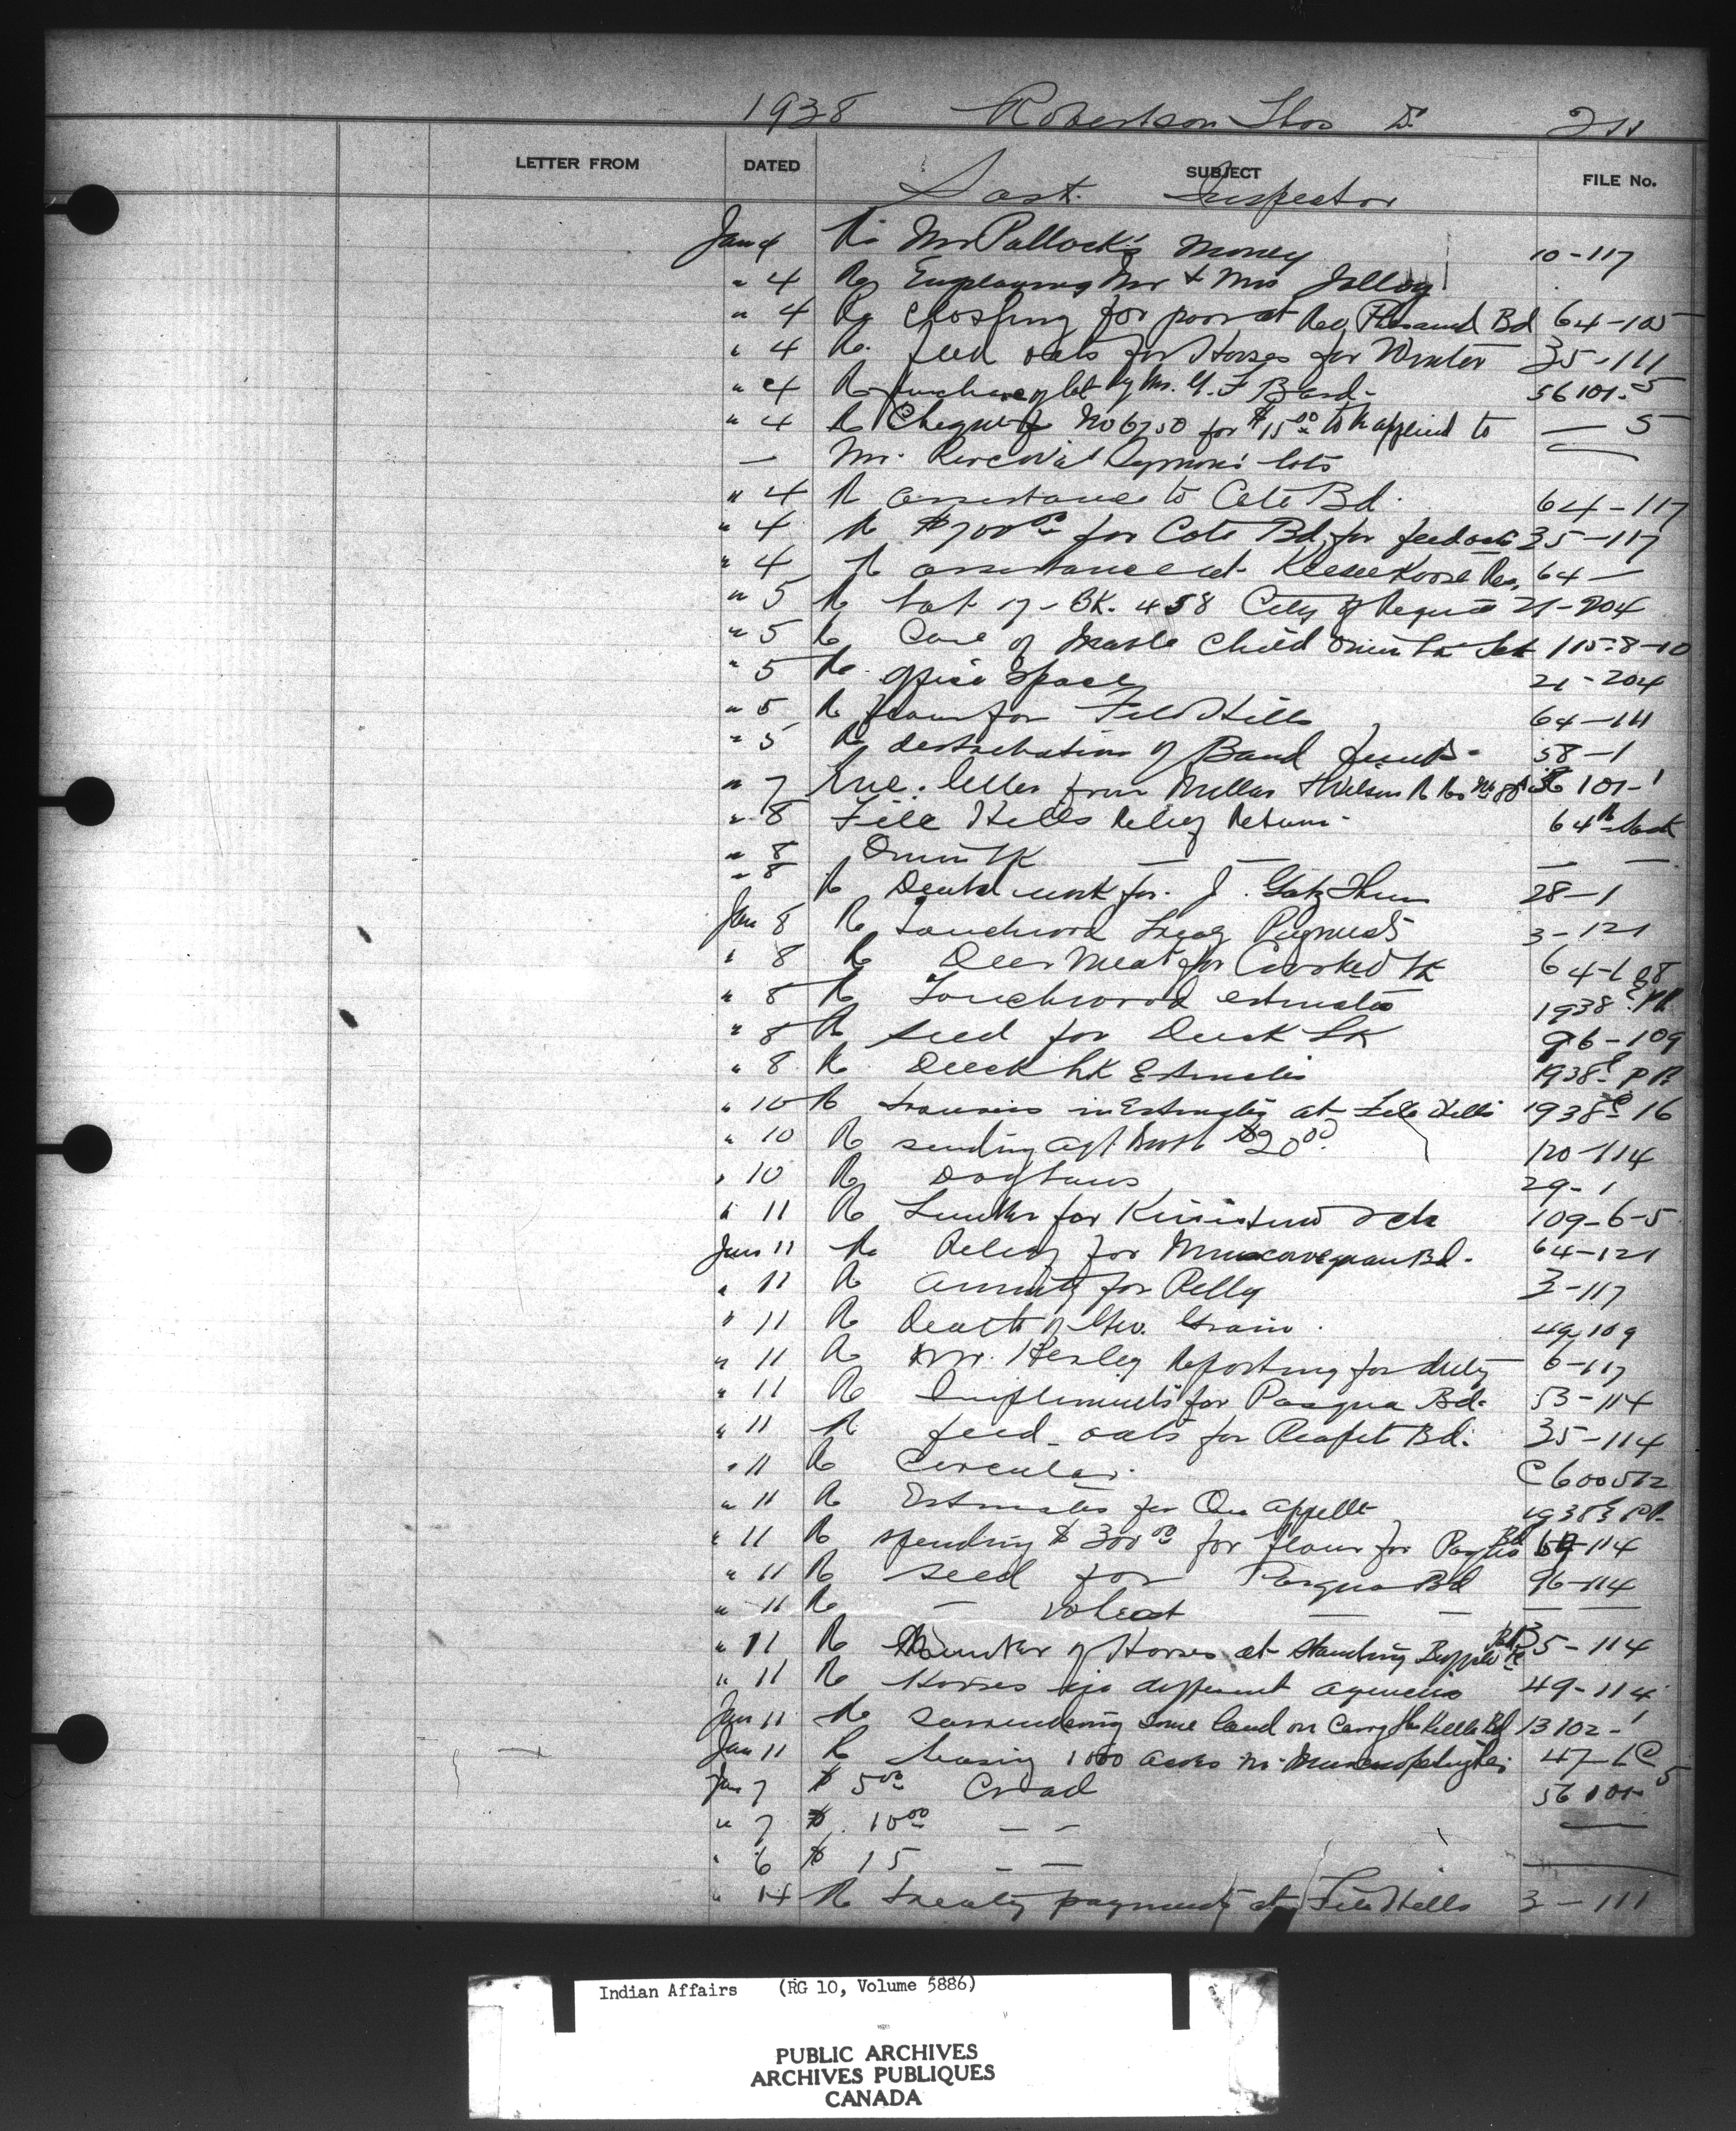 1938 Robertson Thos D. 211
LETTER FROM DATED SUBJECT FILE No.
Sask. Inspector
Jan 4 Re Mr Pollock's money 10-117
" 4 Re Employing Mr & Mrs Jolloy
" 4 Re Clothing for poor at Bd 64-105
" 4 Re. feed oats for Horses for Winter 35-111
" 4 Re purchase of lot by Mr. G. F Bard- 56101-5
" 4 Re Cheque No 6750 for $15.00 to be applied to — 5
— Mr. Percival lots
" 4 Re assistance to Cote Bd. 64-117
" 4 Re $700.00 for Cote Bd. for feed oats 35-117
" 4 Re assistance at Keeseekoose Res. 64 —
" 5 Re Lot 17-BK. 458 City of Regina 21-204
" 5 Re Care of Child Onion Lk 115-8-10
" 5 Re. office Space 21-204
" 5 Re flour for File Hills 64-111
" 5 Re distribution of Band funds- 58-1
" 7 Enc. letter from Millar & Wilson Re Res 56101-1
" 8 File Hills Relief Return- 64
" 8 Onion Lk — — — —
" 8 Re Dental work for. J. 28-1
Jan 8 Re Touchwood Treaty Payments 3-121
" 8 Re Deer Meat for Crooked Lk 64-108
" 8 Re Touchwood estimates 1938 E PR
" 8 Re seed for Duck Lk 96-109
" 8 Re Duck Lk Estimates 1938 E PR
" 10 Re in Estimates at File Hills 1938 E 16
" 10 Re sending Agt $20.00 120-114
" 10 Re 29-1
" 11 Re Lumber for Kinistino 109-6-5
Jan 11 Re Relief for Muscowequan Bd. 64-121
" 11 Re annuity for Pelly 3-117
" 11 Re Death of Geo. 49 109
" 11 Re Mr. Reporting for duty 6-117
" 11 Re Implements for Pasqua Bd. 53-114
" 11 Re feed oats for Peapot Bd. 35-114
" 11 Re Circular. C 600512
" 11 Re Estimates for Qu appelle 1938 E PR
" 11 Re spending $300.00 for flour for Pasqua Bd 64-114
" 11 Re seed for Pasqua Bd 96-114
" 11 Re — wheat — — — —
" 11 Re Number of Horses at Standing Buffalo Res 35-114
" 11 Re Horses in different agencies 49-114
Jan 11 Re surrendering some land on Carry the Kettle Bd 13102-1
Jan 11 Re leasing 1000 acres 47-1 C
Jan 7 $ 5.00 56101-5
" 7 $ 10.00 — — —
" 6 $ 15 — — —
" 14 Re treaty payments at File Hills 3-111
Indian Affairs (RG 10, Volume 5886)
PUBLIC ARCHIVES
ARCHIVES PUBLIQUES
CANADA